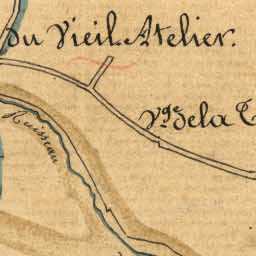 du Vieil Atelier.
Vge de la
Ruisseau